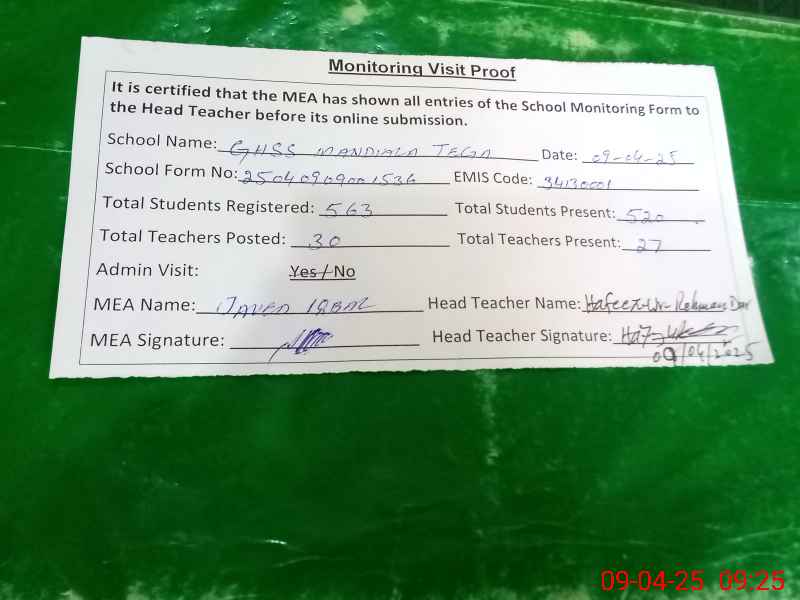 Monitoring Visit Proof
It is certified that the MEA has shown all entries of the School Monitoring Form to
the Head Teacher before its online submission.
School Name: GHSS MANDIALA TEGA Date: 09-04-25
School Form No: 250409090001536 EMIS Code: 34130001
Total Students Registered: 563 Total Students Present: 520
Total Teachers Posted: 30 Total Teachers Present: 27
Admin Visit: Yes / No
MEA Name: JAVED IQBAL Head Teacher Name: Hafeez-ur-Rehman Dar
MEA Signature: Head Teacher Signature:
09/04/2025
09-04-25 09:25